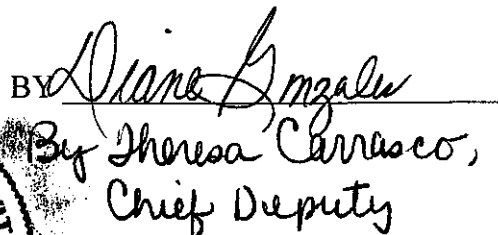 BY Diane Gonzales
By Theresa Carrasco,
Chief Deputy